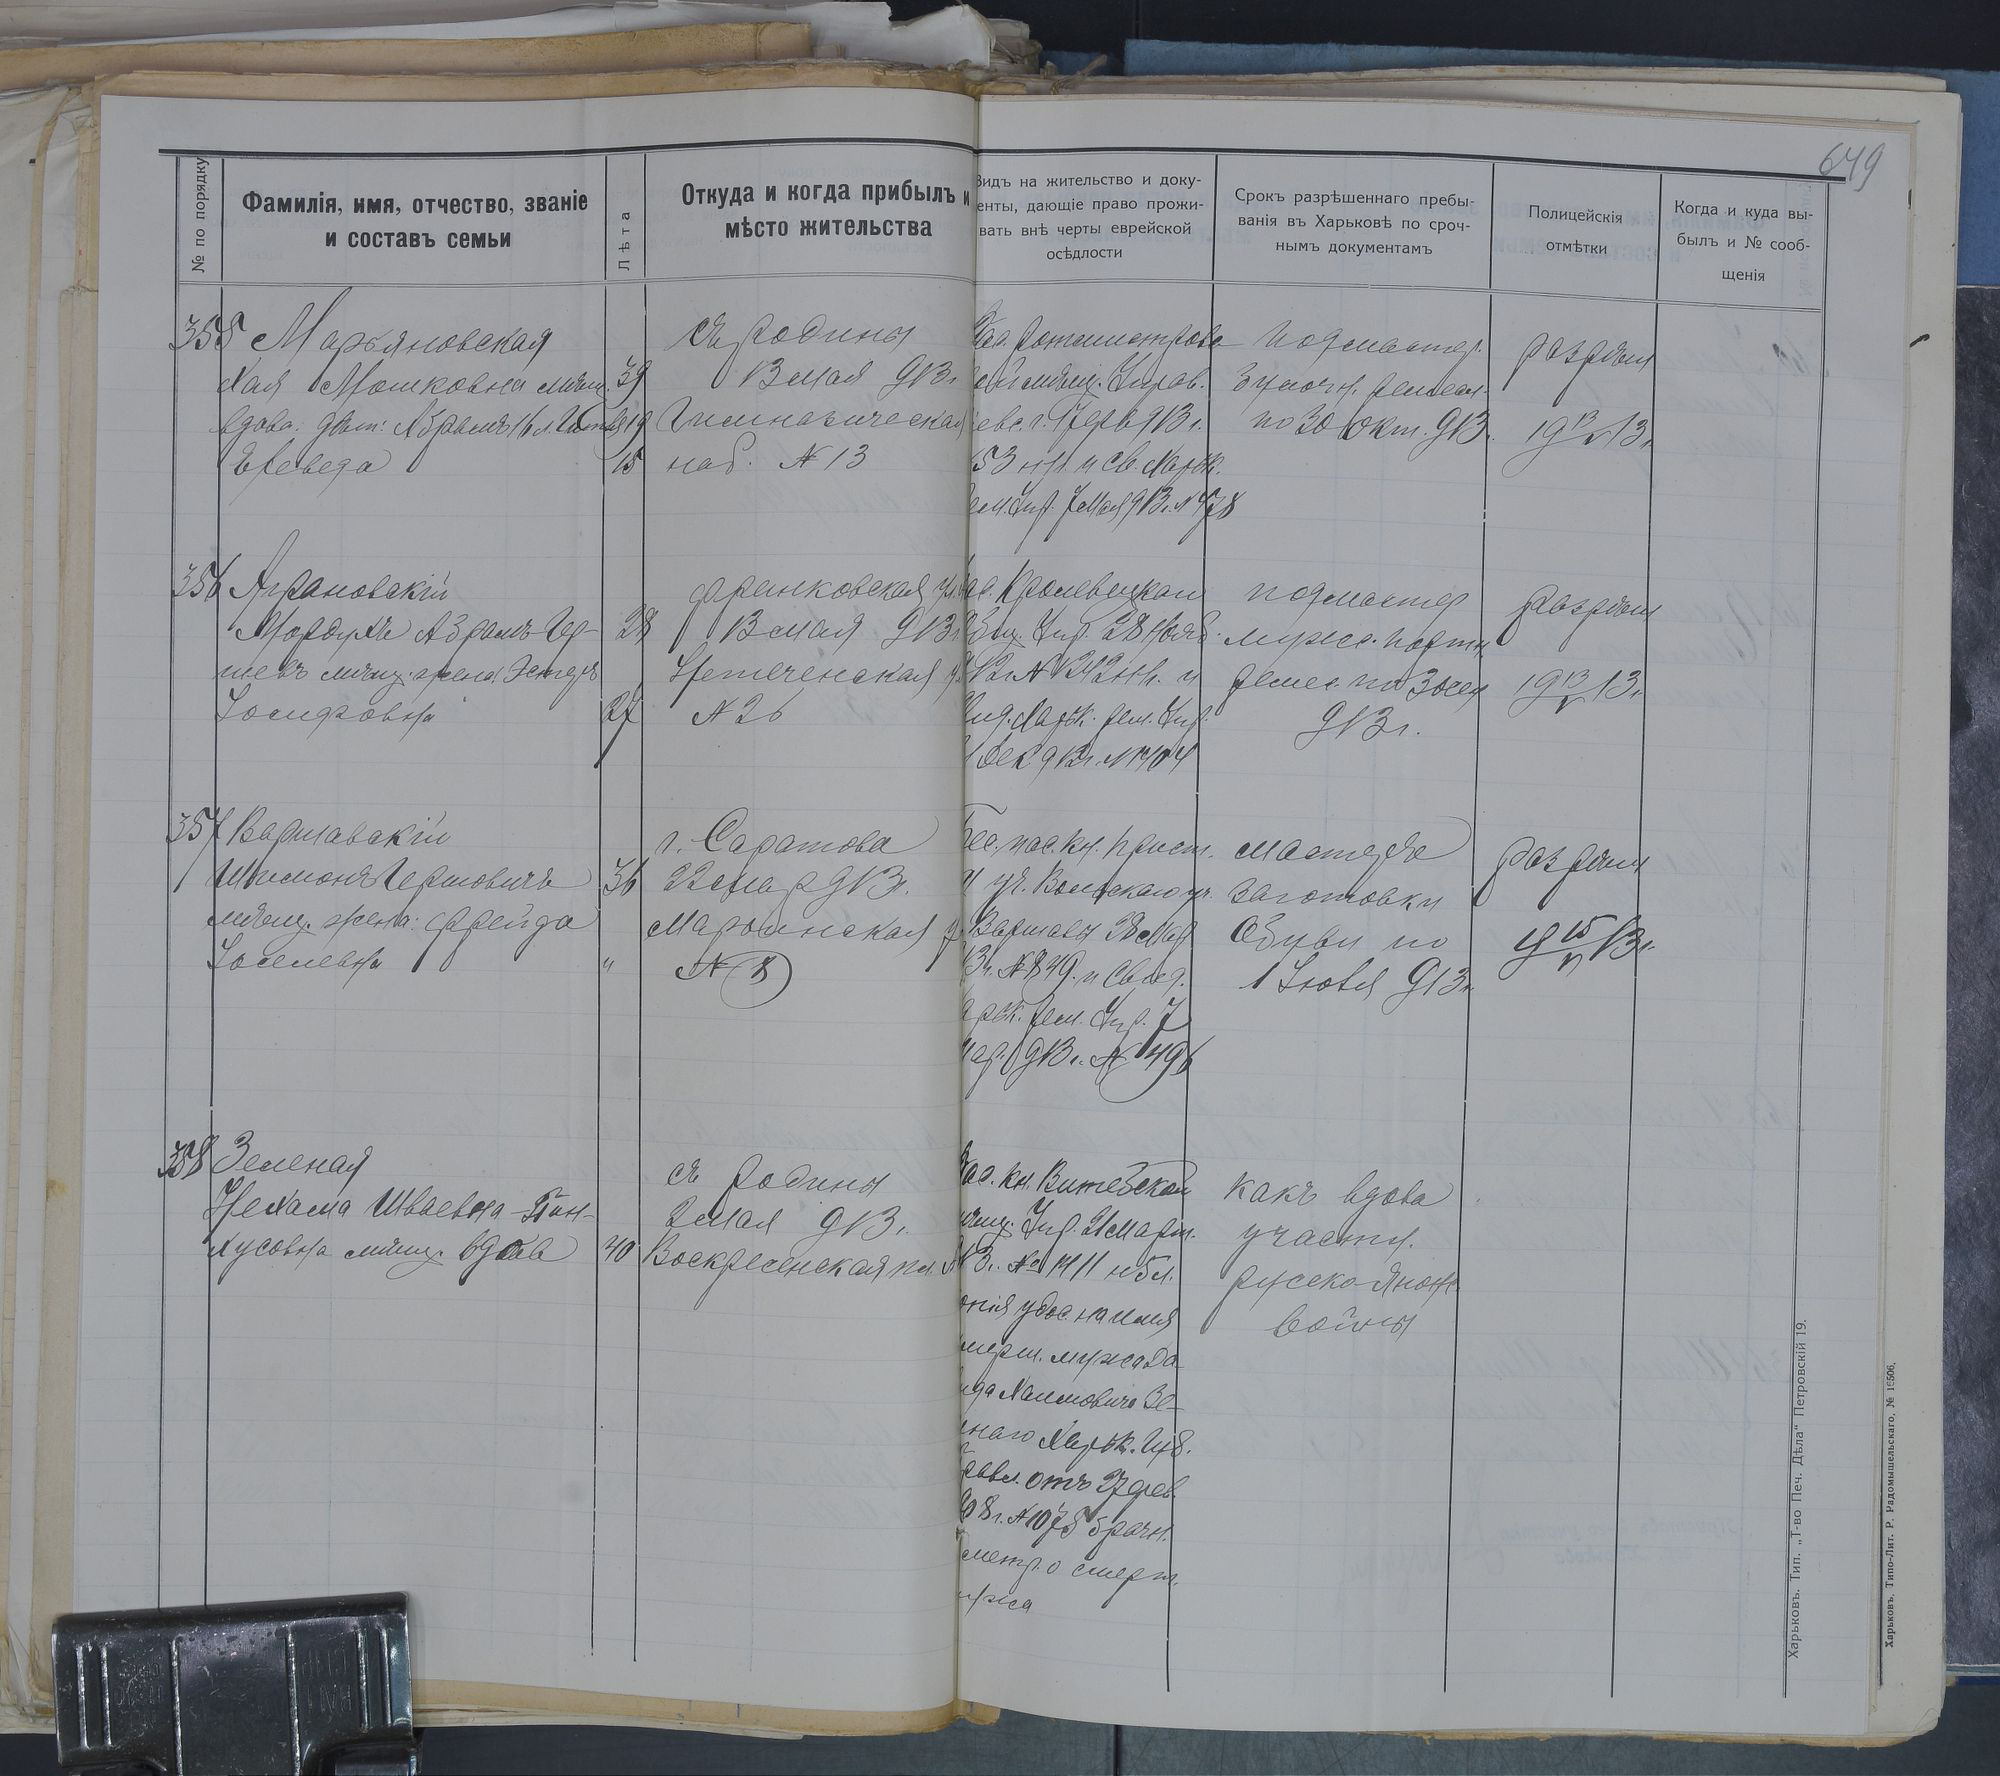 649
№ по порядку
Фамилія, имя, отчество, званіе
и составъ семьи
Лѣта
Откуда и когда прибылъ и
мѣсто жительства
Видъ на жительство и доку-
енты, дающіе право прожи-
вать внѣ черты еврейской
осѣдлости
Срокъ разрѣшеннаго пребы-
ванія въ Харьковѣ по сроч-
нымъ документамъ
Полицейскія
отмѣтки
Когда и куда вы-
былъ и № сооб-
щенія
355 Марьяновская
Хая Мошковна мѣщ. 39
вдова: дѣт: Абрамъ 16 л. 19
15
съ родины
3 мая 913 г.
Гимназическая
наб. № 13
мѣщ. Управ.
913 г.
53 нр. и св. Харьк.
рем. Упр. 7 мая 913 г. № 478
подмастер.
ремесл.
по 30 Окт. 913 г.
разрѣш
19 13/V 13 г.
356 Аграновскій
Мордухъ Абрамъ-Гер-
шевъ мѣщ. жена: Эстеръ
Іосифовна
28
27
Френковская ул.
3 мая 913 г.
Нетеченская ул.
№ 26
Кролевецкаго
Общ. Упр. 28 Нояб.
12 г. № и
вид. Харьк. рем. Упр.
Дек. 912 г. № 1404
подмастер
мужс. порти.
ремес. по
913 г.
разрѣш
19 13/V 13 г.
357 Варшавскій
Шимонъ Гершовичъ 36
мѣщ. жена: Фрейда
Іоселевна "
г. Саратова
22 мар 913 г.
Марьинская у
№ 8
бес. пас. кн. Прист.
уч. Вольскаго уч.
Варшавы 28 Мар
13 г. № 849. и Свид.
арьк. рем. Упр. 7
мар. 913 г. № 496
мастеръ
заготовки
обуви по
1 Іюля 913 г.
разрѣш
19 15/V 13 г.
358 Зеленая
Нехама Шваевна-Пин-
хусовна мѣщ. вдова 40
съ родины
2 мая 913 г.
Воскресенская пл.
Пас. кн. Витебской
мѣщ. Упр. 21 март.
13 г. № 1411
удос. на имя
умерш. мужа Да-
ида Хаимовича Зе-
наго Харьк. Губ.
равл. отъ 27 фев.
908 г. № 1075 брачн.
метр. о смерт.
ужа
какъ вдова
участн.
русско-японс.
войны
Харьковъ. Тип. „Т-во Печ. Дѣла“ Петровскій 19.
Харьковъ, Типо-Лит. Р. Радомышельскаго, № 16506.